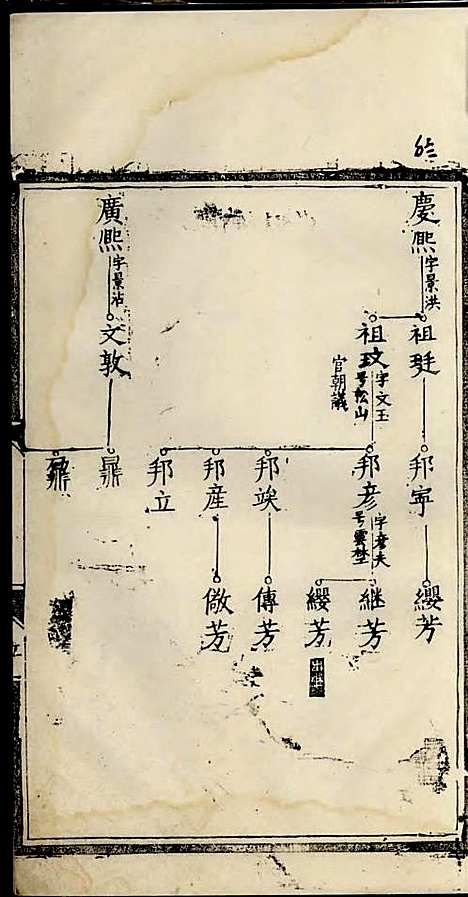 慶熙 字景洪
祖珽
邦寧
纓芳
祖玟 字文玉 号松山
官朝議
邦彥 字彥夫 号雲埜
継芳
纓芳
邦竢
傳芳
邦産
儆芳
邦立
廣熙 字景沾
文敦
鼎
鼐